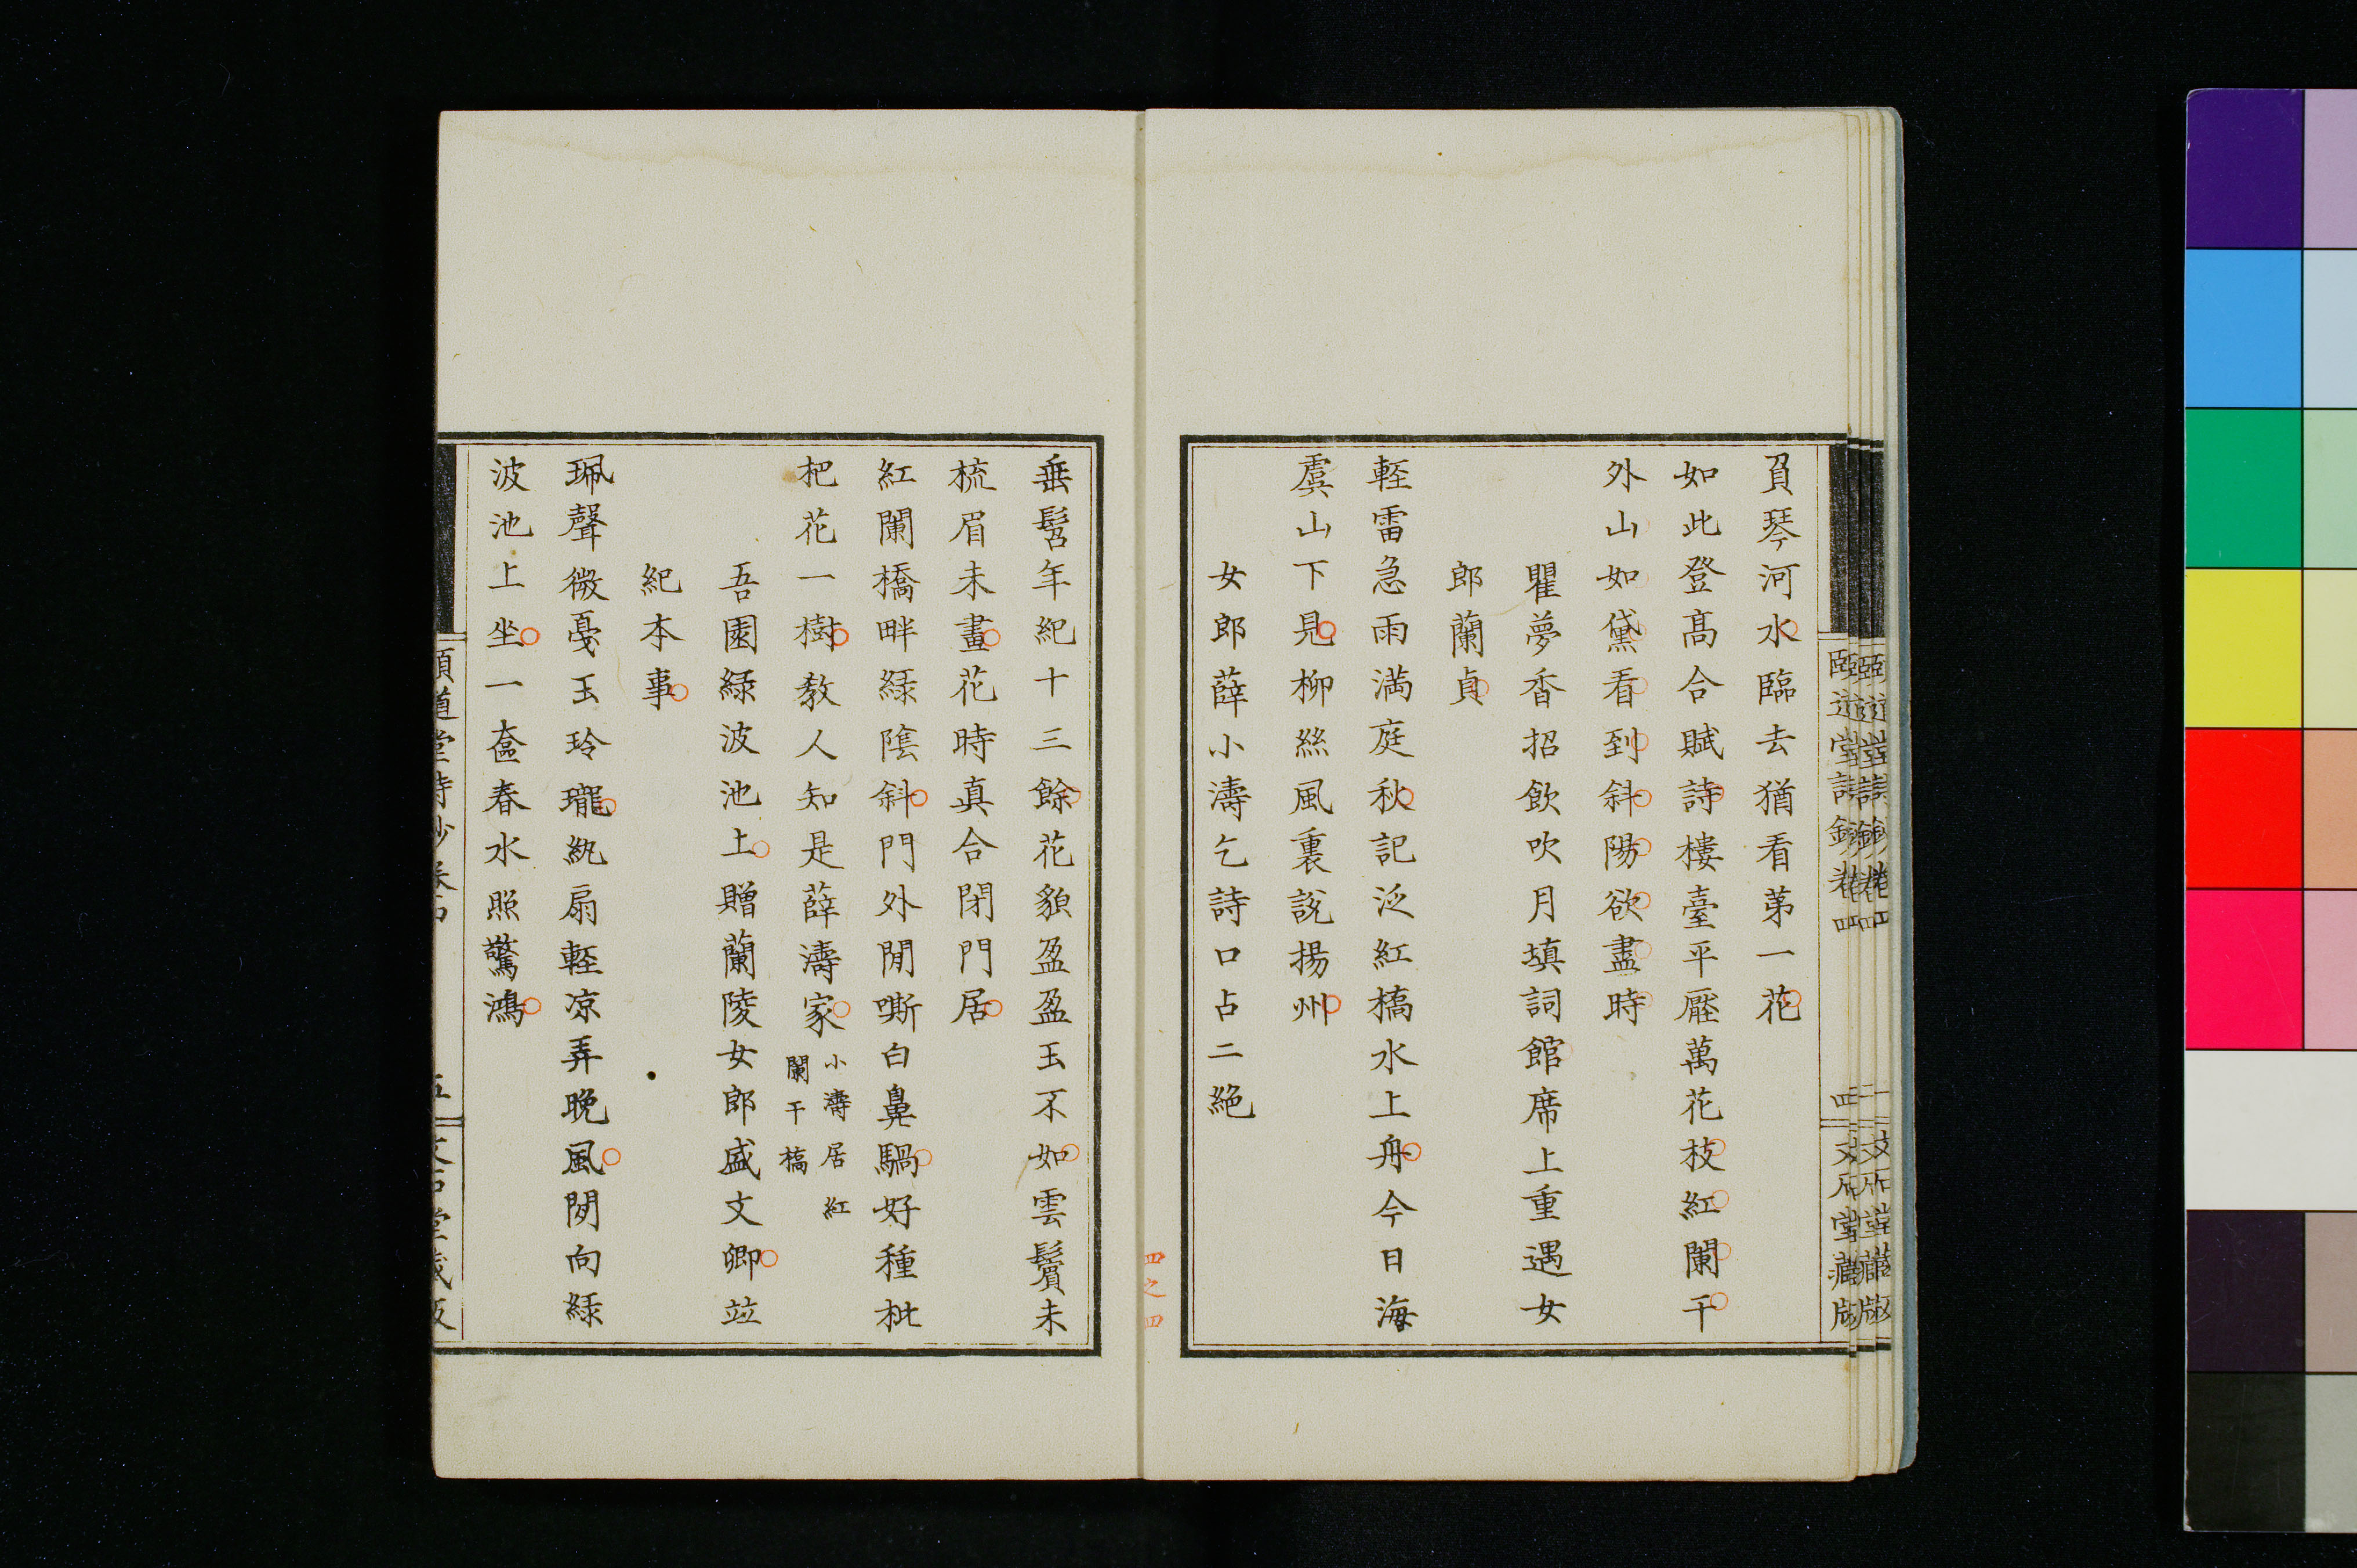 負琴河水臨去猶看第一花
如此登髙合賦詩樓臺平壓萬花枝紅闌干
外山如黛看到斜陽欲盡時
瞿夢香招飲吹月塡詞館席上重遇女
郎蘭貞
輕雷急雨滿庭秋記泛紅橋水上舟今日海
虞山下見柳絲風裏說揚州
女郎薛小濤乞詩口占二絶
垂髫年紀十三餘花貌盈盈玉不如雲鬢未
梳眉未畫花時真合閉門居
紅闌橋畔綠陰斜門外閒嘶白鼻騧好種枇
杷花一樹教人知是薛濤家
小濤居紅
闌干橋
吾園綠波池上贈蘭陵女郎盛文卿竝
紀本事
珮聲微戛玉玲瓏紈扇輕凉弄晚風閒向綠
波池上坐一奩春水照驚鴻
頤道堂詩鈔卷四
四
文石堂藏版
五
四之四